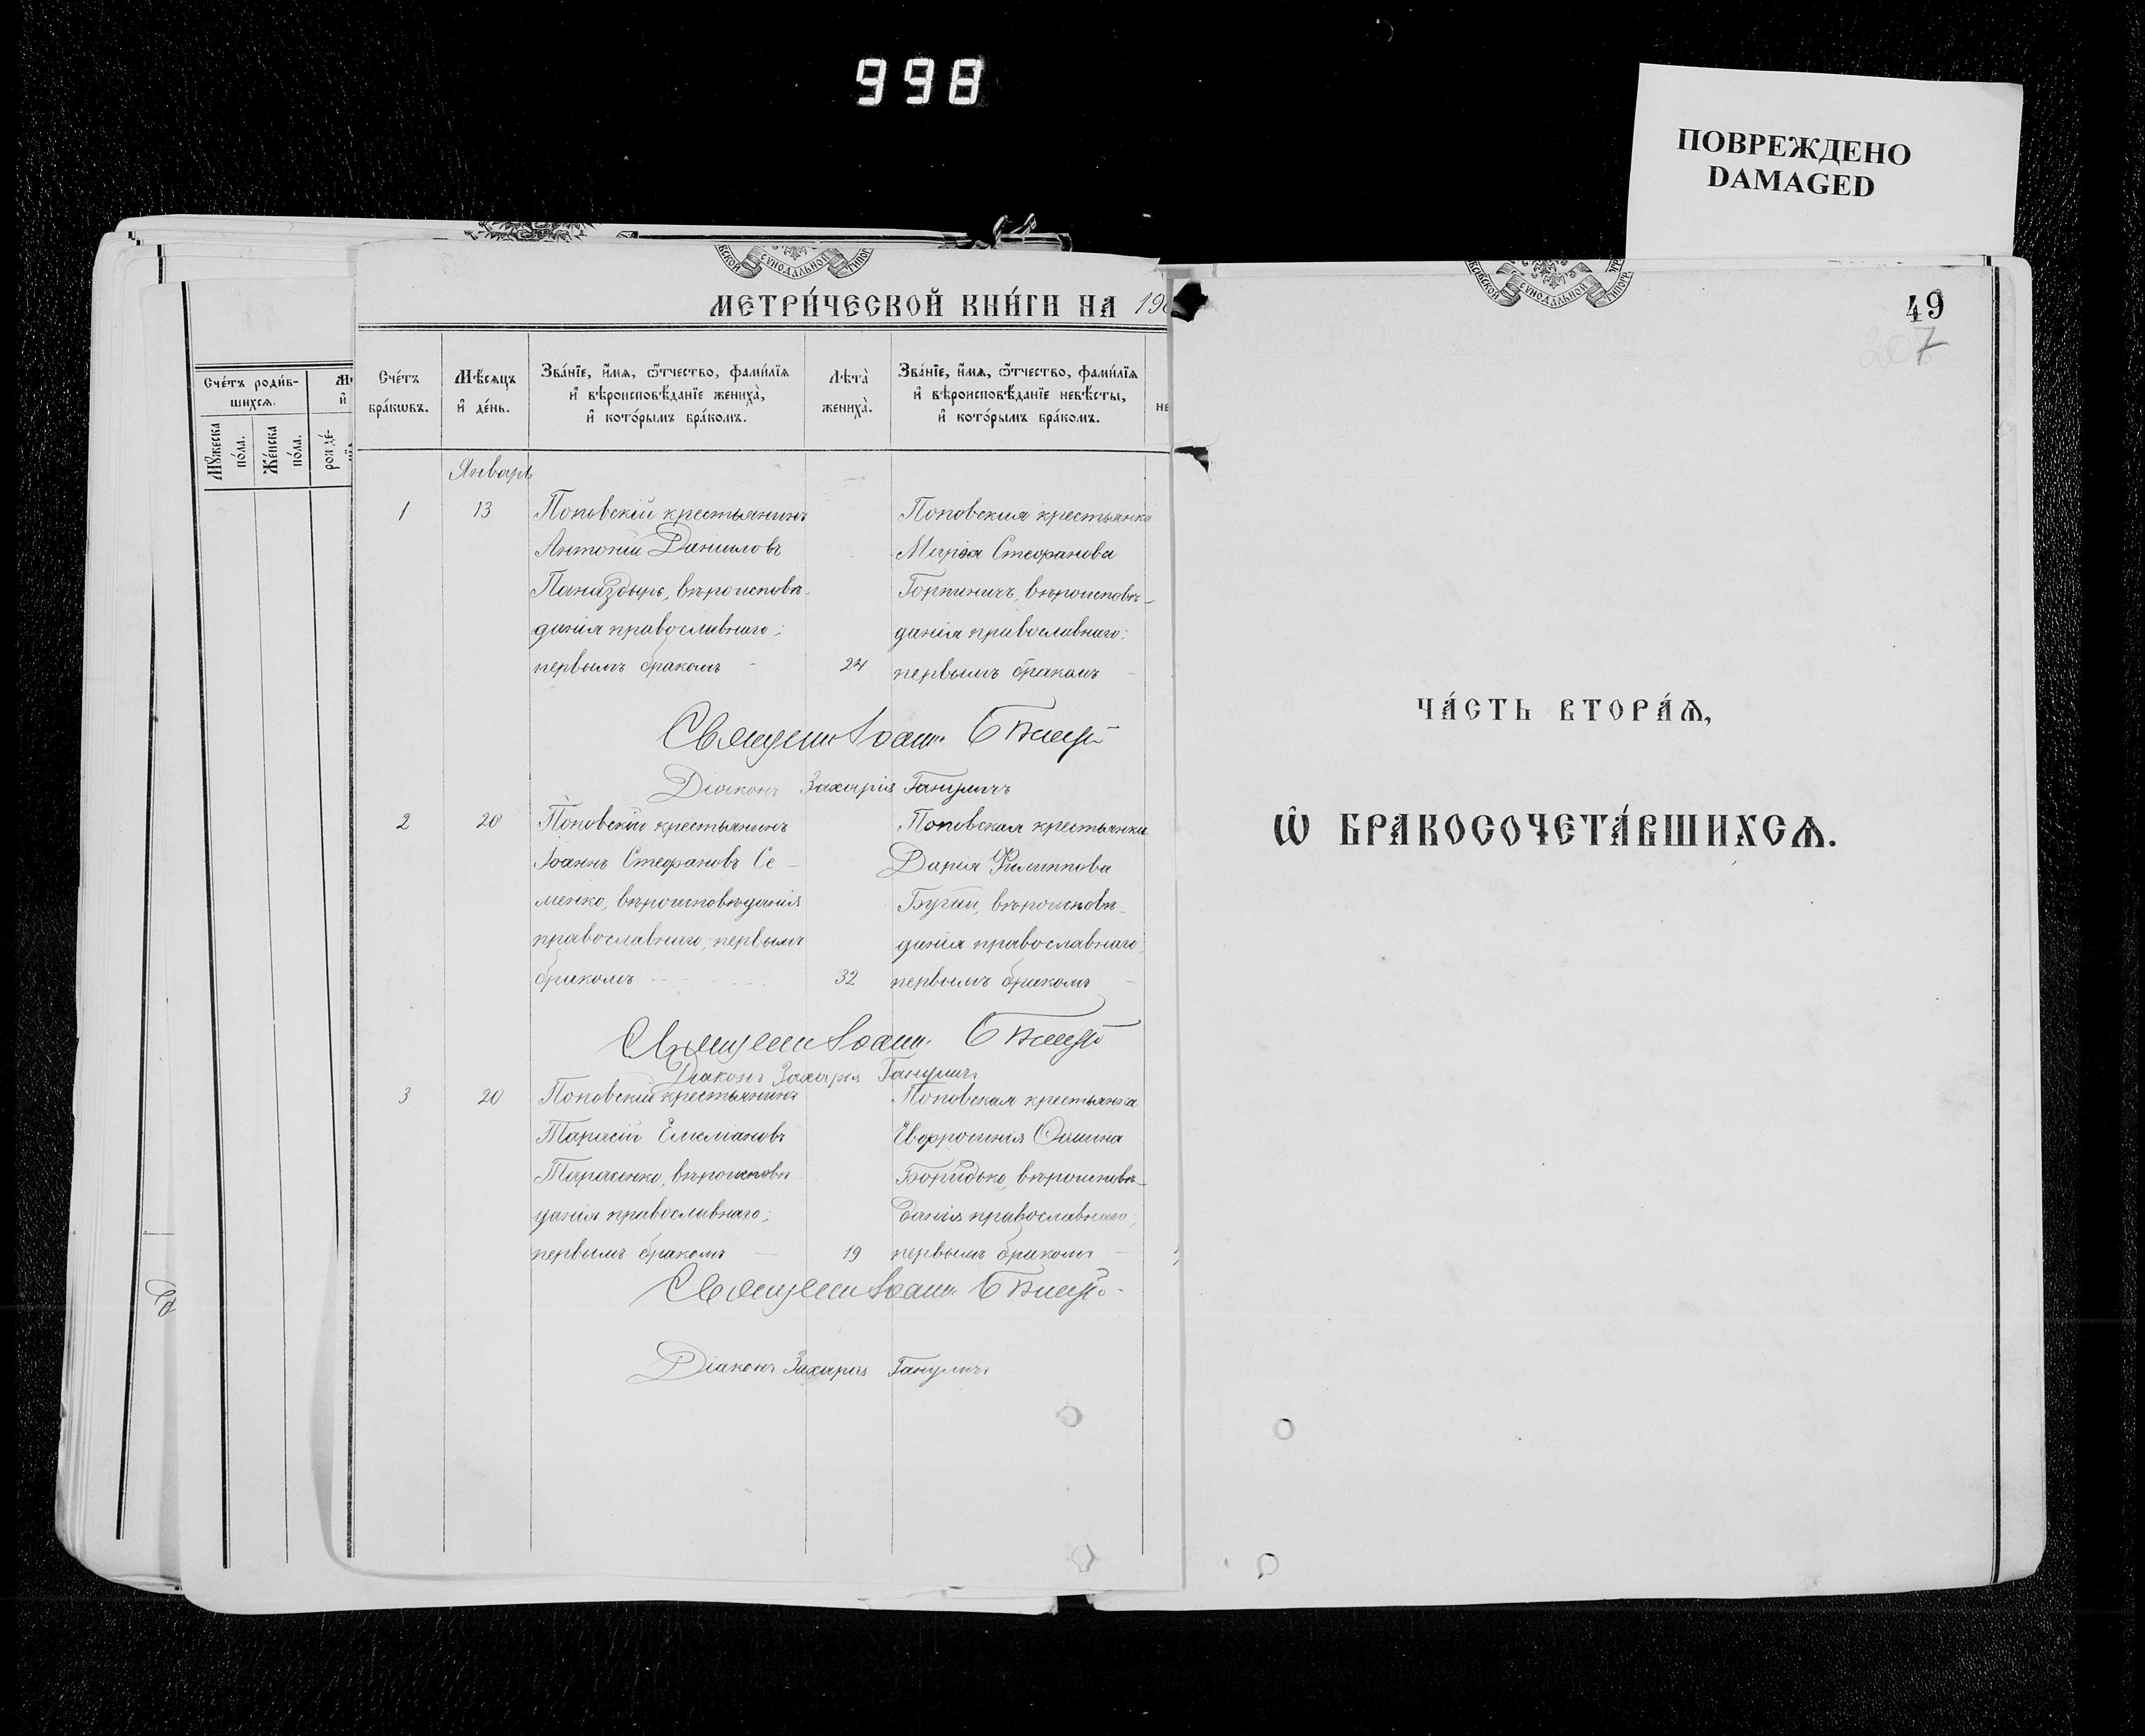 998
ПОВРЕЖДЕНО
DAMAGED
СѴНОДАЛЬНОЙ
МЕТРИ́ЧЕСКОЙ КНИ́ГИ НА 190
Сче́тъ роди́в-
шихсѧ.
Мꙋ́жеска по́ла.
Же́нска по́ла.
рожде́-
Сче́тъ бра́кѡвъ.
Мѣ́сѧцъ и҆ де́нь.
Зва́нїе, и҆́мѧ, ѻ҆́тчество, фами́лїѧ
и҆ вѣроисповѣ́данїе жениха̀,
и҆ кото́рымъ бра́комъ.
Лѣта̀ жениха̀.
Зва́нїе, и҆́мѧ, ѻ҆́тчество, фами́лїѧ
и҆ вѣроисповѣ́данїе невѣ́сты,
и҆ кото́рымъ бра́комъ.
не
Январь
1 13 Поповскій крестьянинъ
Антоній Даниловъ
вѣроисповѣ-
данія православнаго;
первымъ бракомъ - 24
Поповская крестьянка
Марія Стефанова
Горпиничъ, вѣроисповѣ-
данія православнаго;
первымъ бракомъ -
Іоаннъ
Діаконъ Захарія
2 20 Поповскій крестьянинъ
Іоаннъ Стефановъ Се-
менко, вѣроисповѣданія
православнаго; первымъ
бракомъ - 32
Поповская крестьянка
Дарія Филиппова
Бугай, вѣроисповѣ-
данія православнаго,
первымъ бракомъ -
Іоаннъ
Діаконъ Захарія
3 20 Поповскій крестьянинъ
Тарасій Емеліановъ
Тарасенко, вѣроисповѣ-
данія православнаго;
первымъ бракомъ - 19
Поповская крестьянка
Евфросинія
вѣроисповѣ-
данія православнаго;
первымъ бракомъ -
Іоаннъ
Діаконъ Захарія
СѴНОДАЛЬНОЙ
49
207
ЧА́СТЬ ВТОРА́Ѧ,
Ѡ҆ БРАКОСОЧЕТА́ВШИХСѦ.